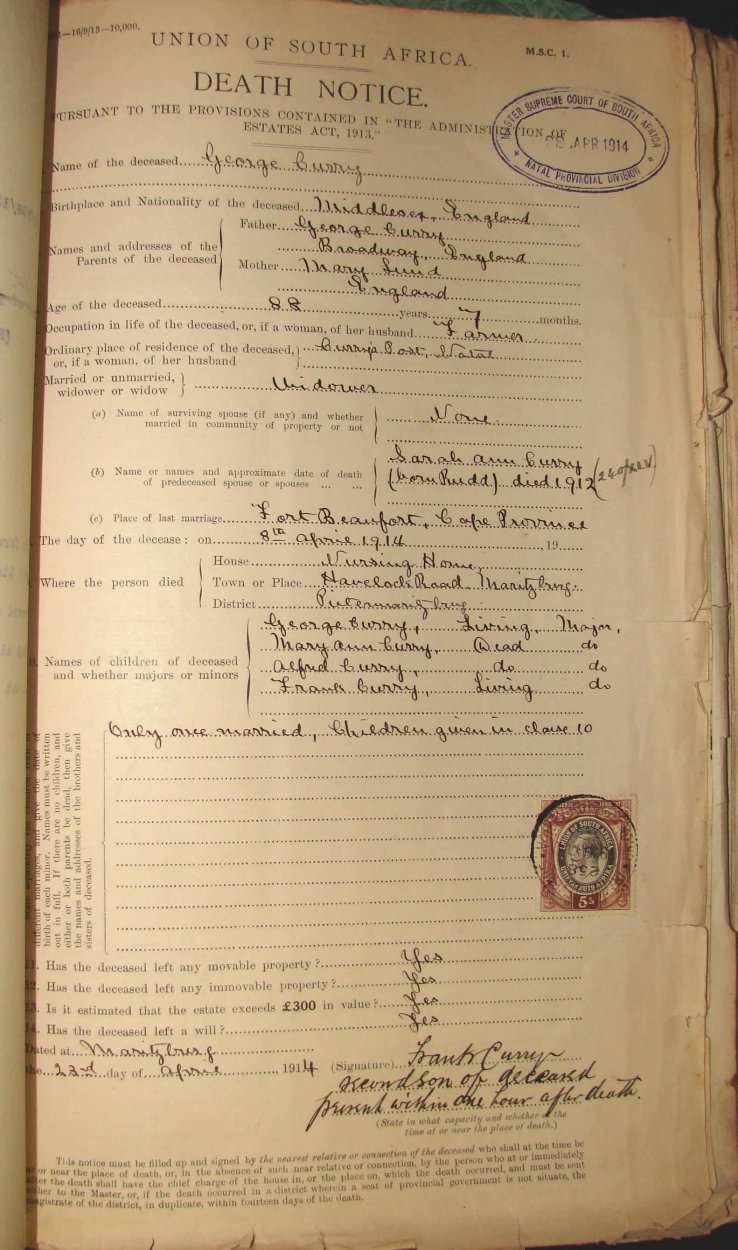 1—16/9/13—10,000.
UNION OF SOUTH AFRICA.
M.S.C. 1.
DEATH NOTICE.
PURSUANT TO THE PROVISIONS CONTAINED IN "THE ADMINISTRATION OF
ESTATES ACT, 1913."
MASTER SUPREME COURT OF SOUTH AFRICA
APR 1914
NATAL PROVINCIAL DIVISION
Name of the deceased George Curry
Birthplace and Nationality of the deceased Middlesex, England
Names and addresses of the Parents of the deceased
Father George Curry
Broadway, England
Mother Mary Lund
England
Age of the deceased 88 years 7 months.
Occupation in life of the deceased, or, if a woman, of her husband Farmer
Ordinary place of residence of the deceased, or, if a woman, of her husband Curry's Post, Natal
Married or unmarried, widower or widow Widower
(a) Name of surviving spouse (if any) and whether married in community of property or not None
(b) Name or names and approximate date of death of predeceased spouse or spouses ... ...
Sarah Ann Curry
(born Rudd) died 1912
(c) Place of last marriage Fort Beaufort, Cape Province
The day of the decease: on 8th April 1914, 19
Where the person died
House Nursing Home
Town or Place Havelock Road Maritzburg.
District Pietermaritzburg
Names of children of deceased and whether majors or minors
George Curry, Living, Major,
Mary Ann Curry, Dead do
Alfred Curry, do do
Frank Curry, Living do
Only once married, Children given in clause 10
different marriages, and give the date of
birth of each minor. Names must be written
out in full. If there are no children, and
either or both parents be dead, then give
the names and addresses of the brothers and
sisters of deceased.
UNION OF SOUTH AFRICA
5s
11. Has the deceased left any movable property? Yes
12. Has the deceased left any immovable property? Yes
13. Is it estimated that the estate exceeds £300 in value? Yes
14. Has the deceased left a will? Yes
Dated at Maritzburg
the 23rd day of April 1914
(Signature) Frank Curry
second son of deceased
present within one hour after death.
(State in what capacity and whether at the
time at or near the place of death.)
This notice must be filled up and signed by the nearest relative or connection of the deceased who shall at the time be
at or near the place of death, or, in the absence of such near relative or connection, by the person who at or immediately
after the death shall have the chief charge of the house in, or the place on, which the death occurred, and must be sent
either to the Master, or, if the death occurred in a district wherein a seat of provincial government is not situate, the
magistrate of the district, in duplicate, within fourteen days of the death.